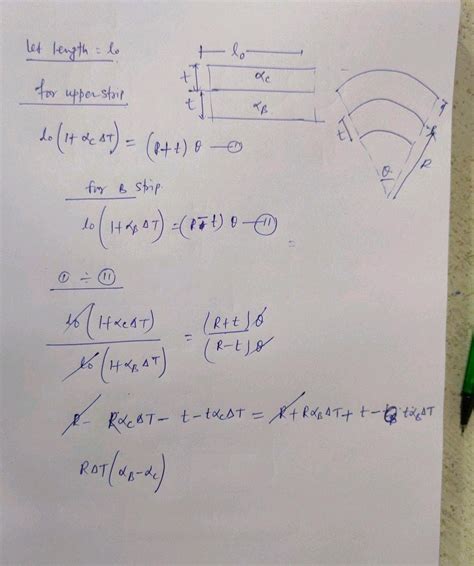 let length = l₀
for upper strip
l₀(1+α_cΔT) = (R+t)θ —(I)
l₀
t
α_c
t
α_B
t
R
θ
for B strip
l₀(1+α_BΔT) = (R-t)θ —(II)
=
(I) ÷ (II)
l₀(1+α_cΔT) / l₀(1+α_BΔT) = (R+t)θ / (R-t)θ
R - Rα_cΔT - t - tα_cΔT = R + Rα_BΔT + t - tα_BΔT
RΔT(α_B-α_c)